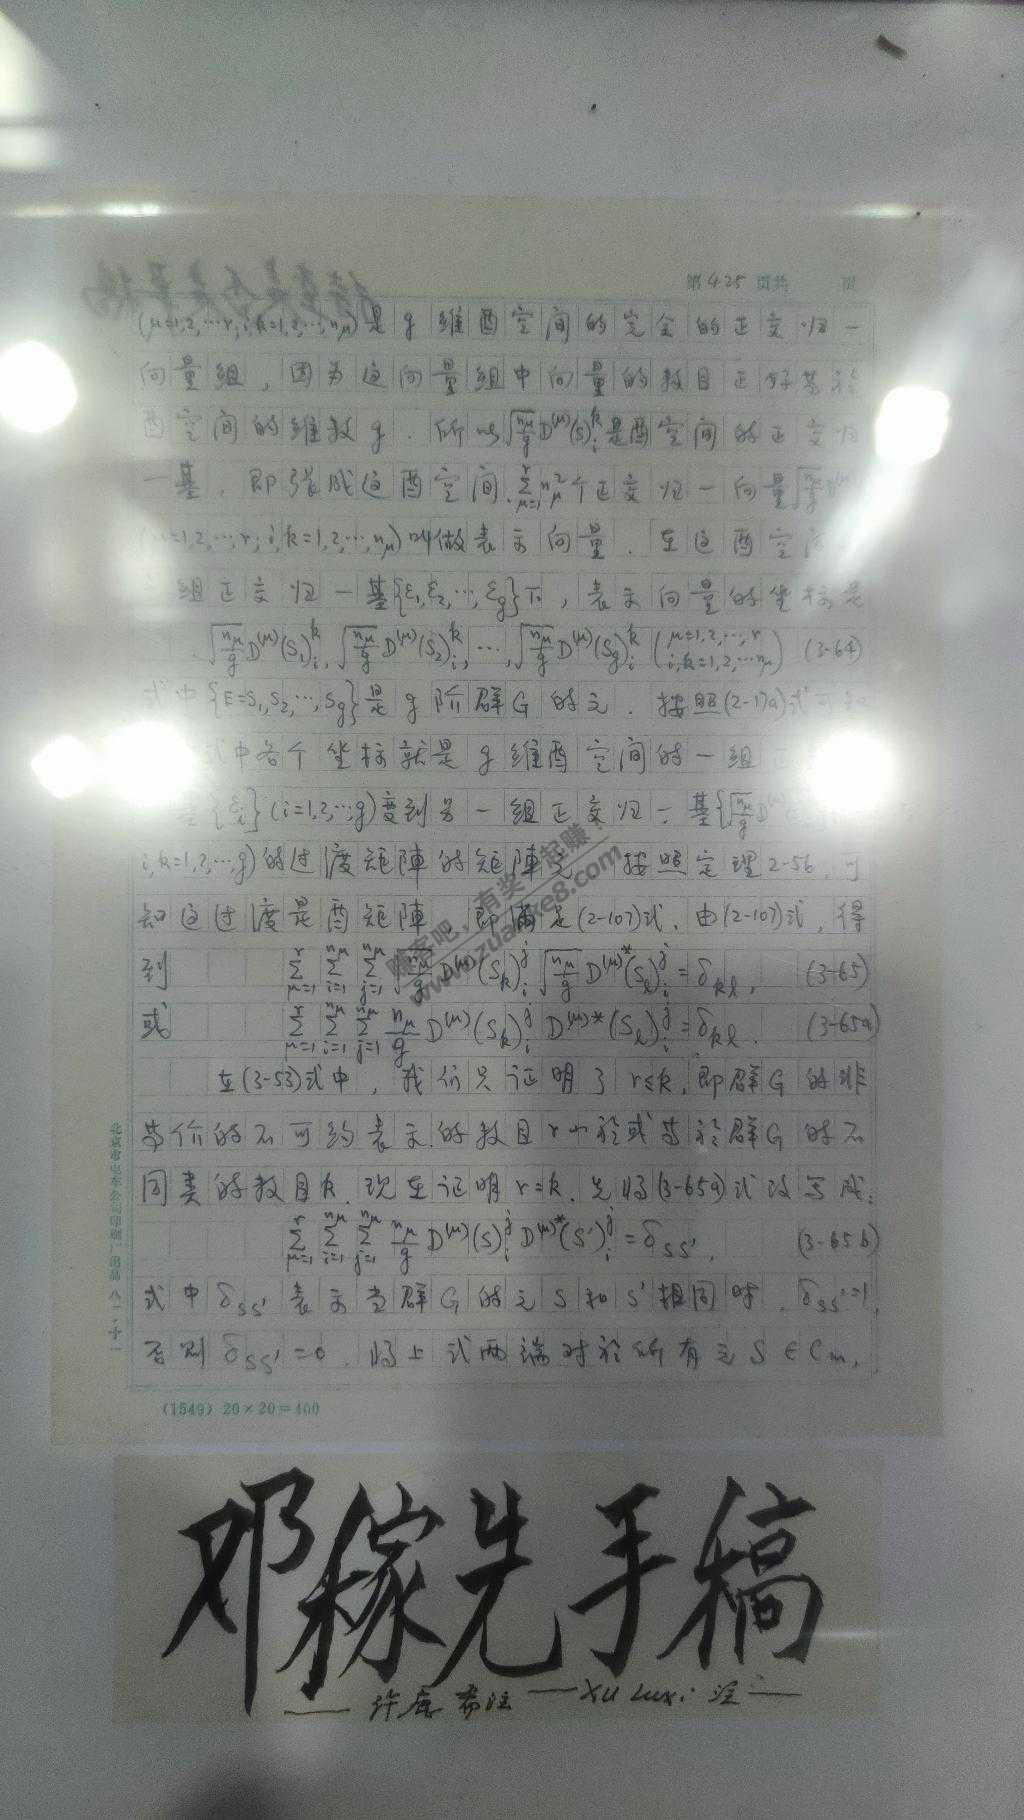 第425页共 页
(μ=1,2,…r;i,k=1,2,…,nμ)是g维酉空间的完全的正交归一
向量组,因为这向量组中向量的数目正好等於
酉空间的维数g.所以√(nμ/g)D^(μ)(S)_i^k是酉空间的正交归
一基.即张成这酉空间.Σ_{μ=1}^r n_μ^2个正交归一向量√(nμ/g)
(μ=1,2,…,r;i,k=1,2,…,nμ)叫做表示向量.在这酉空间
组正交归一基{ε1,ε2,…,εg}下,表示向量的坐标是
√(nμ/g)D^(μ)(S1)_i^k,√(nμ/g)D^(μ)(S2)_i^k,…,√(nμ/g)D^(μ)(Sg)_i^k (μ=1,2,…,r i,k=1,2,…nμ) (3-64)
式中{E=S1,S2,…,Sg}是g阶群G的元.按照(2-17a)式可知
式中各个坐标就是g维酉空间的一组
基{εi}(i=1,2,…,g)变到另一组正交归一基{√(nμ/g)D
i,k=1,2,…,g)的过渡矩陣的矩陣元.按照定理2-56,可
知这过渡是酉矩陣,即满足(2-107)式.由(2-107)式,得
到 Σ_{μ=1}^r Σ_{i=1}^{nμ} Σ_{j=1}^{nμ} √(nμ/g)D^(μ)(Sk)_i^j √(nμ/g)D^(μ)*(Sl)_i^j=δkl, (3-65)
或 Σ_{μ=1}^r Σ_{i=1}^{nμ} Σ_{j=1}^{nμ} nμ/g D^(μ)(Sk)_i^j D^(μ)*(Sl)_i^j=δkl. (3-65a)
在(3-53)式中,我们只证明了r≤k,即群G的非
等价的不可约表示的数目r小於或等於群G的不
同类的数目k.现在证明r=k.先将(3-65a)式改写成:
Σ_{μ=1}^r Σ_{i=1}^{nμ} Σ_{j=1}^{nμ} nμ/g D^(μ)(S)_i^j D^(μ)*(S')_i^j=δSS', (3-65b)
式中δSS'表示当群G的元S和S'相同时.δSS'=1,
否则δSS'=0.将上式两端对於所有元S∈Cm,
北京市电车公司印刷厂出品 八一·十一
(1549) 20×20=400
赚客吧,有奖一起赚!
www.zuanke8.com
邓稼先手稿
——许鹿希注——Xu Luxi 注——